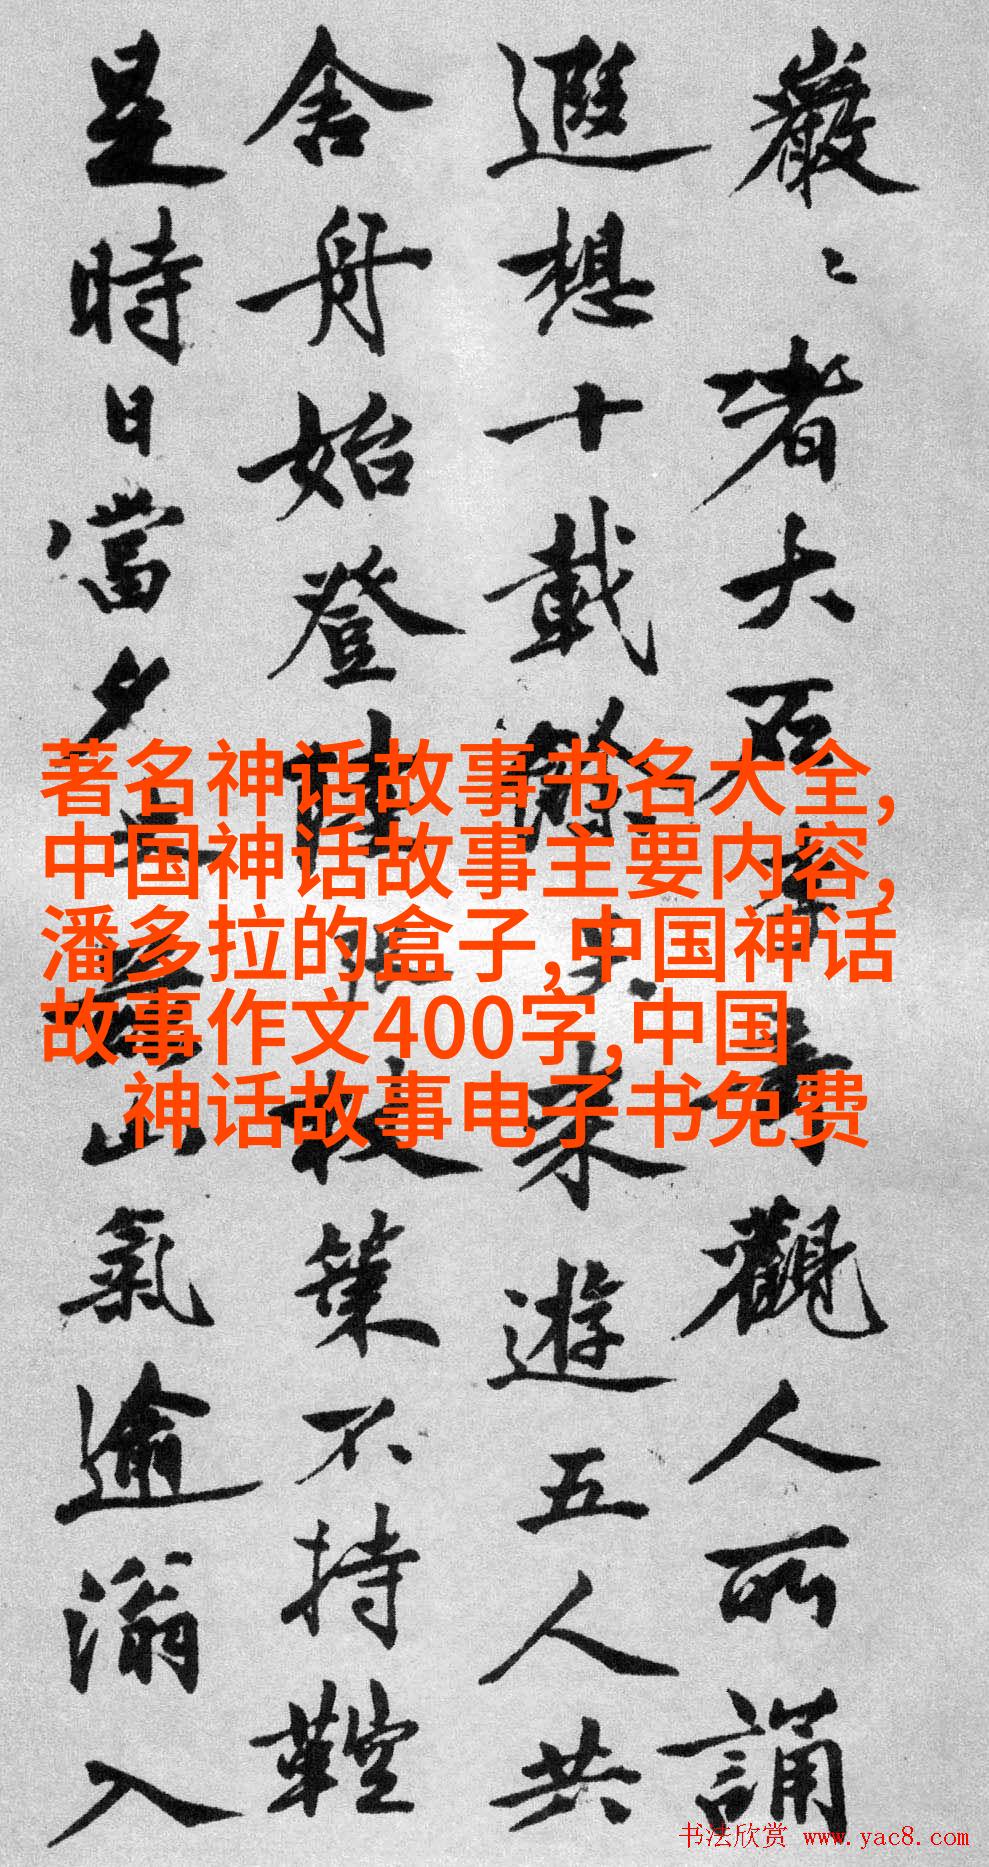 巖〻者大石觀人所誦
遐想十載来遊五人共
舍舟始登陸策不持鞚
是時日當夕山氣逾滃入
著名神话故事书名大全,
中国神话故事主要内容,
潘多拉的盒子,中国神话
故事作文400字,中国
神话故事电子书免费
书法欣赏 www.yac8.com